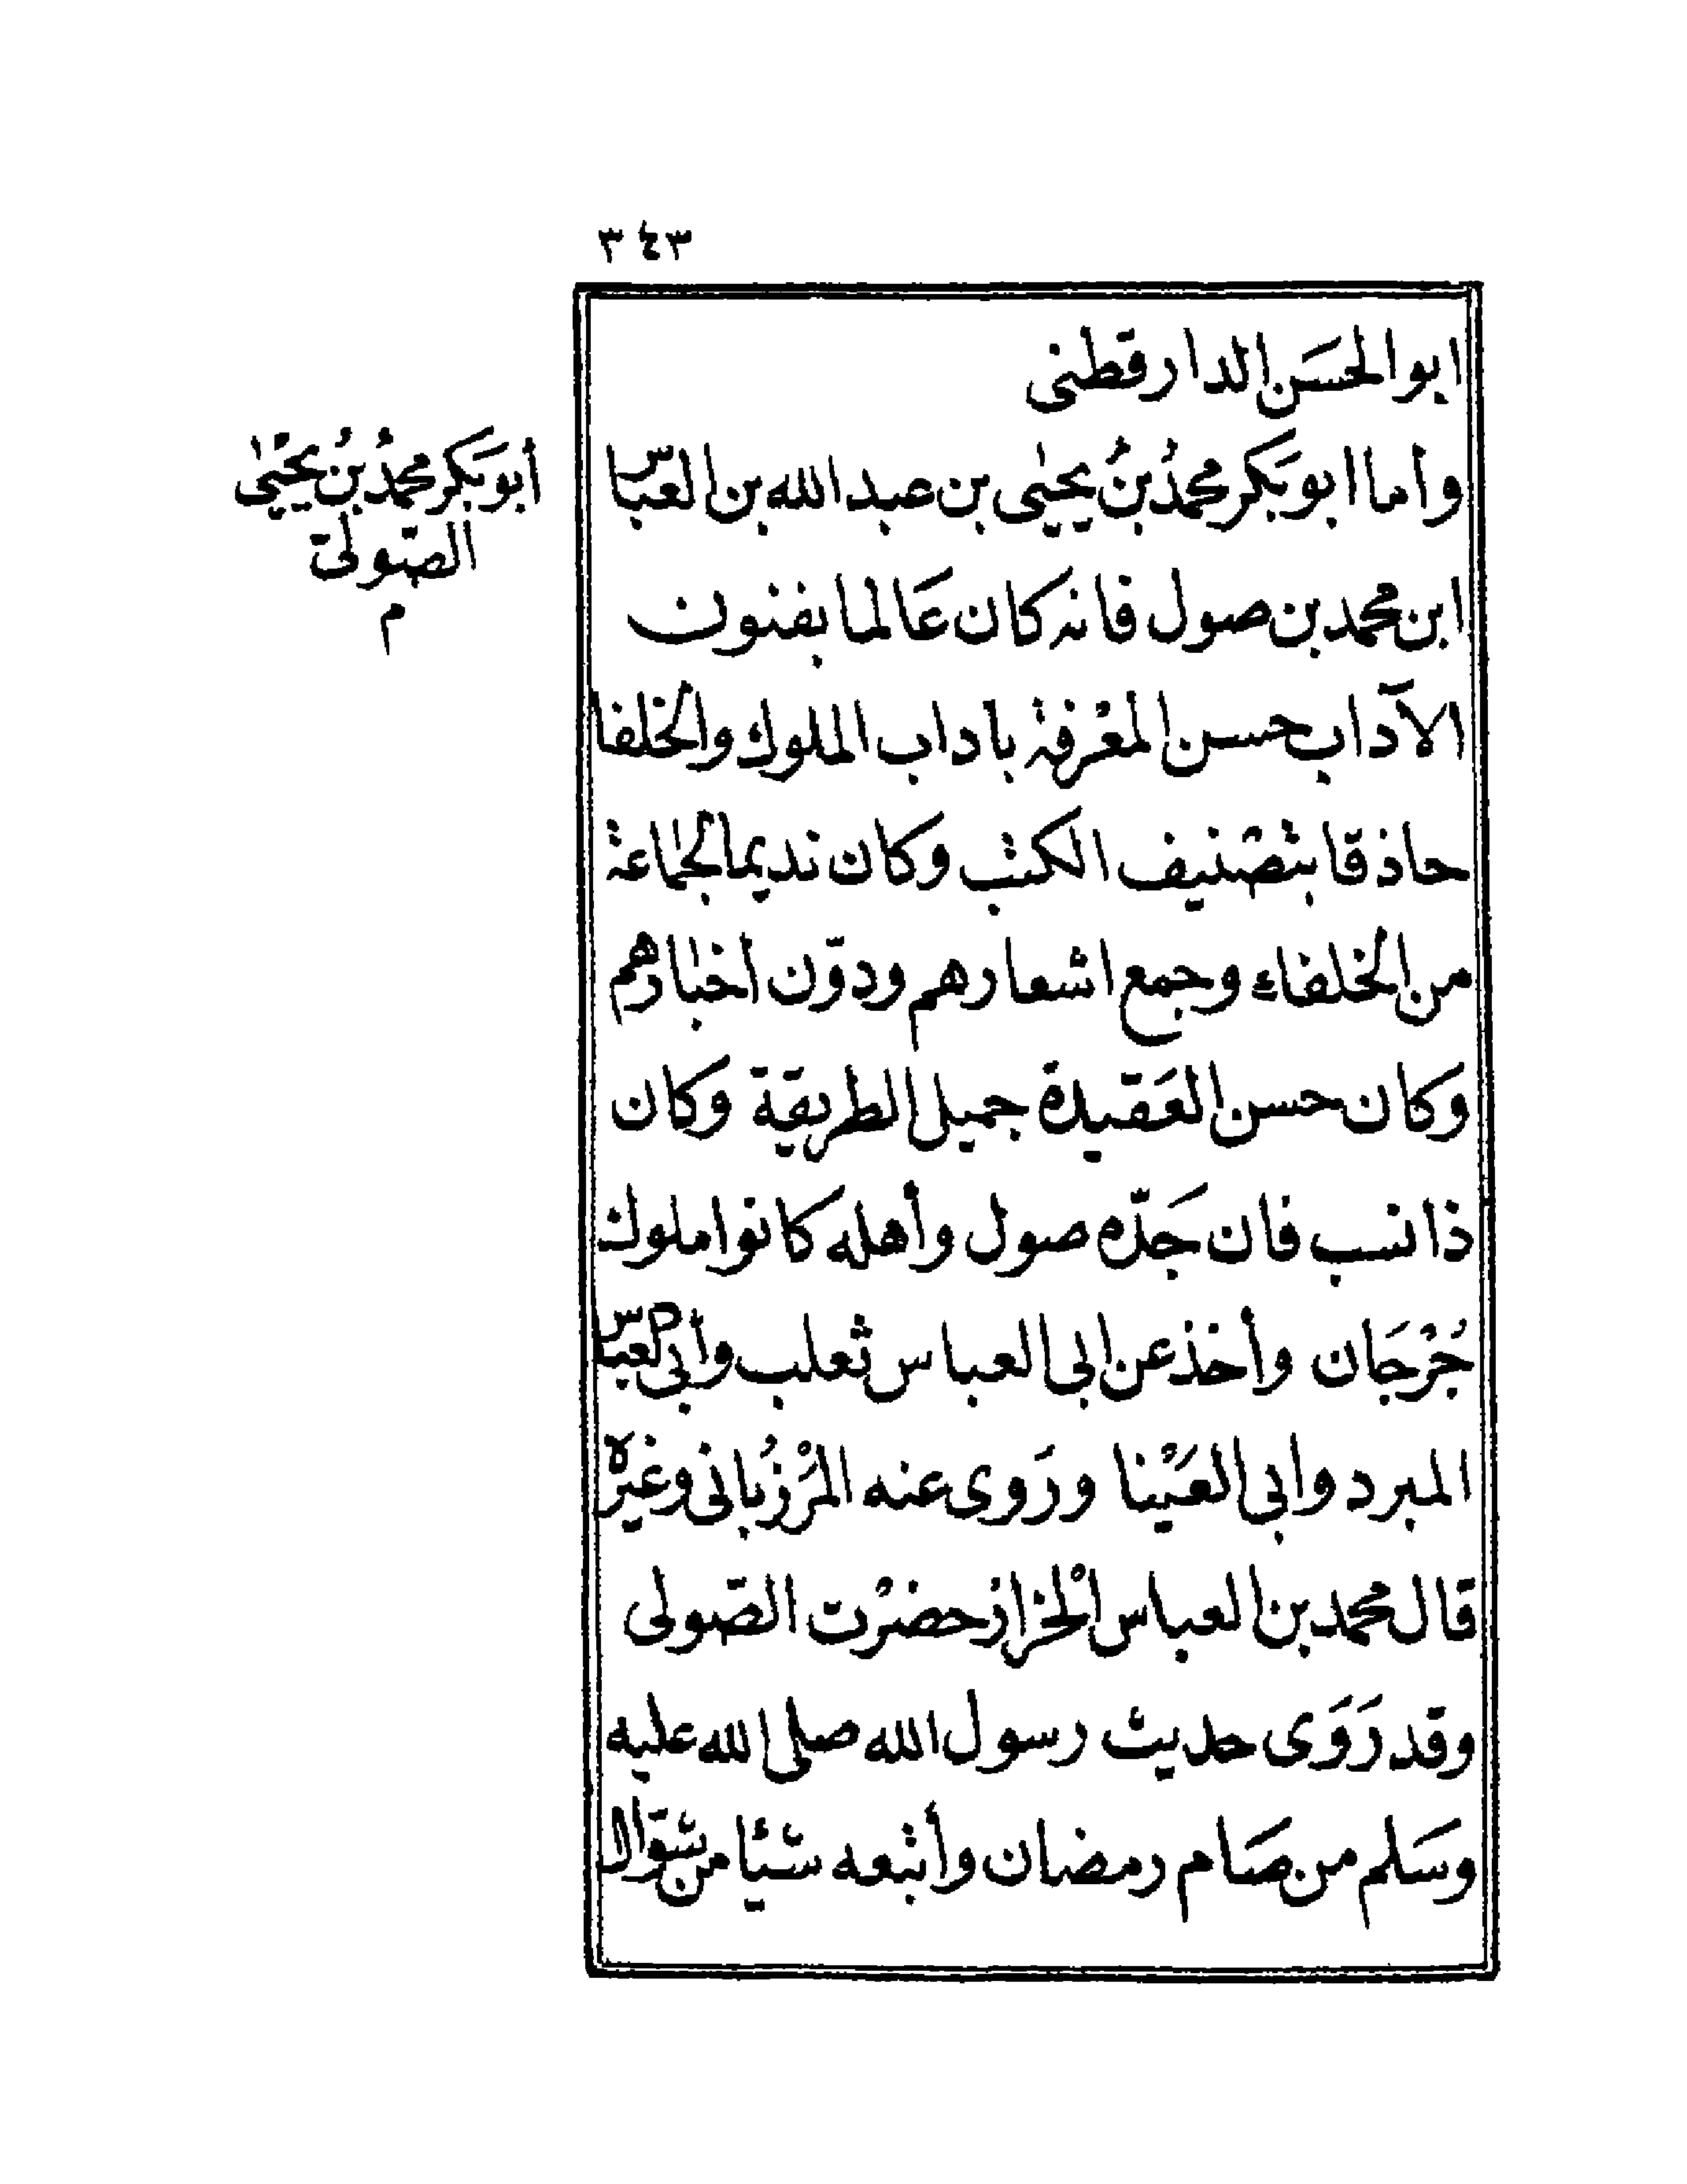 ٣٤٣
ابو الحسَن الدارقطنى
وأما ابو بَكر محمدُ بنُ يحيٰى بن عبد الله بن العبّاس
أبو بَكر محمدُ بنُ يحْيٰى
الصّولىّ
م
ابن محمد بن صول فانه كان عَالما بفنون
الآداب حسن المعْرفة بآداب الملوك والخلفا
حاذقا بتصْنيف الكتب وكان نديما لجماعة
من الخلفاء وجمع اشعارهم ودوّن أخبارهم
وكان حسن العَقيدة جميل الطريقة وكان
ذا نسب فان جَدّه صول وأهله كانوا ملوك
جُرْجَان وأخذ عن ابى العباس ثعلب وأبى العبّاس
المبرد وابى العَيْنا ورَوى عنه المَرْزُبانى وغيره
قال محمد بن العباس الْخزاز حضرْت الصّولى
وقد رَوَى حديث رسول الله صلى الله عليه
وسَلم من صَام رمضان وأتبعه ستّا من شوّال